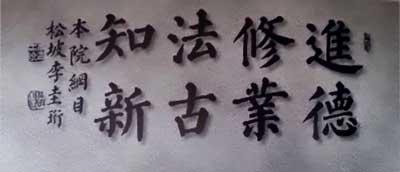 進德
修業
法古
知新
本院綱目
松坡李圭珩